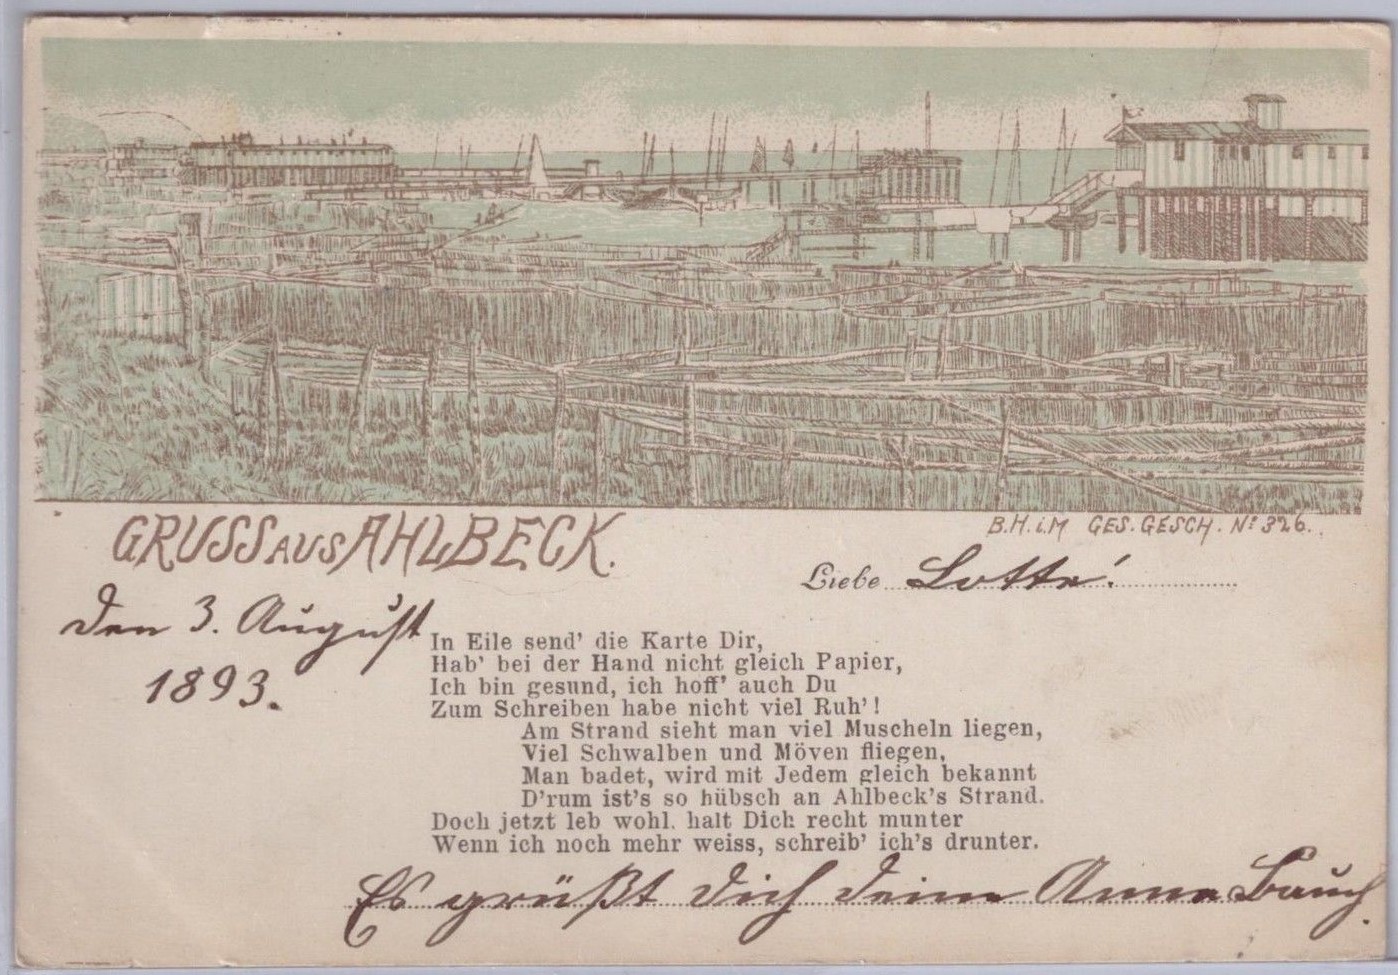 GRUSS AUS AHLBECK.
B.H.i.M GES. GESCH. No 326.
Liebe Lotte!
den 3. August
1893.
In Eile send' die Karte Dir,
Hab' bei der Hand nicht gleich Papier,
Ich bin gesund, ich hoff' auch Du
Zum Schreiben habe nicht viel Ruh'!
Am Strand sieht man viel Muscheln liegen,
Viel Schwalben und Möven fliegen,
Man badet, wird mit Jedem gleich bekannt
D'rum ist's so hübsch an Ahlbeck's Strand.
Doch jetzt leb wohl, halt Dich recht munter
Wenn ich noch mehr weiss, schreib' ich's drunter.
Es grüßt Dich Deine Anna Bauch.